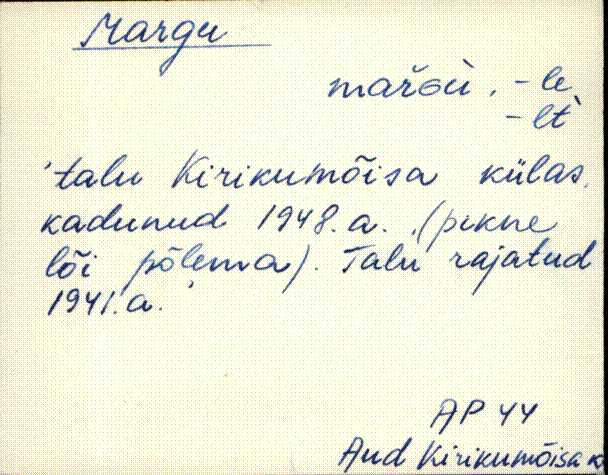 Margu
marGù, -le
-lt
'talu Kirikumõisa külas,
kadunud 1948.a. (pikne
lõi põlema). Talu rajatud
1941.a.'
AP 44
Aud Kirikumõisa k